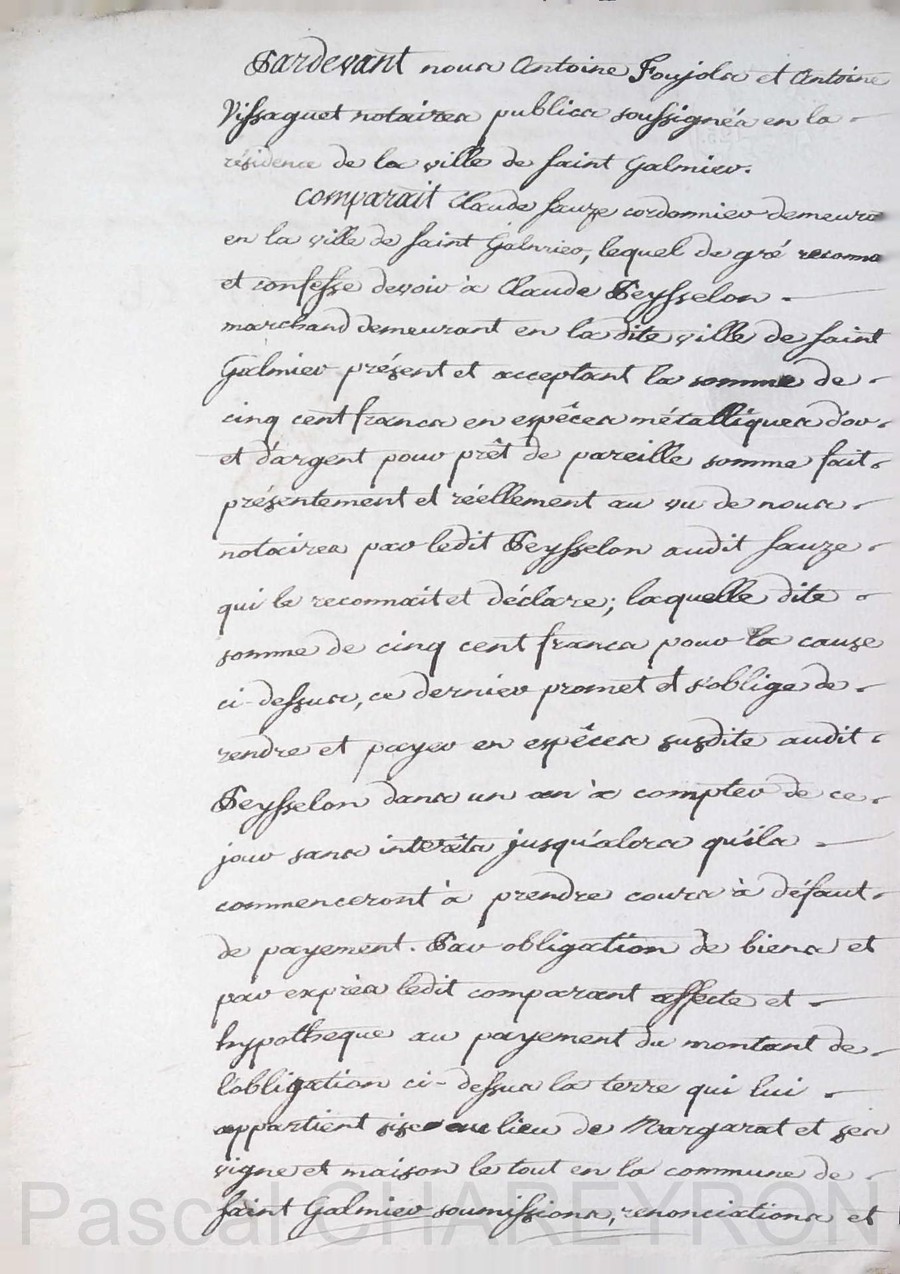 Pardevant nous Antoine Foujols et Antoine
Vissaguet notaires publics soussignés en la
résidence de la ville de saint Galmier.
Comparait Claude Sauze cordonnier demeura
en la ville de saint Galmier, lequel de gré reconna
et confesse devoir à Claude Peysselon
marchand demeurant en la dite ville de saint
Galmier présent et acceptant la somme de
cinq cent francs en espêces métalliques d'or
et d'argent pour prêt de pareille somme fait
présentement et réellement au vu de nous
notaires par ledit Peysselon audit Sauze
qui le reconnait et déclare; laquelle dite
somme de cinq cent francs pour la cause
ci-dessus, ce dernier promet et s'oblige de
rendre et payer en espêces susdite audit
Peysselon dans un an à compter de ce
jour sans interêts jusqu'alors qu'ils
commenceront à prendre cours à défaut
de payement. Par obligation de biens et
par exprès ledit comparant affecte et
hypotheque au payement du montant de
l'obligation ci-dessus la terre qui lui
appartient sise au lieu de Margarat et ses
vigne et maison le tout en la commune de
saint Galmier soumissions, renonciations et
Pascal CHAREYRON